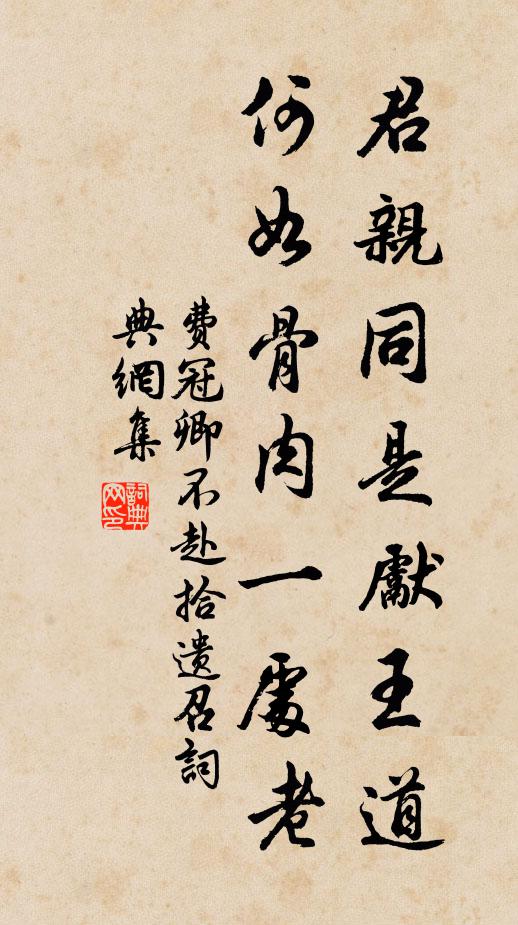 君親同是獻王道
何如骨肉一處老
費冠卿不赴拾遺召詞
典網集
詞典
网印